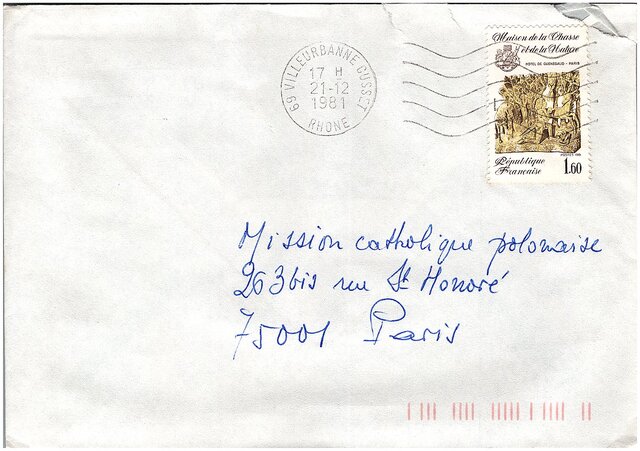 69 VILLEURBANNE CUSSET
17 H
21-12
1981
RHONE
Maison de la Chasse
et de la Nature
HÔTEL DE GUÉNÉGAUD - PARIS
République
Française
1.60
Mission catholique polonaise
263bis rue St Honoré
75001 Paris